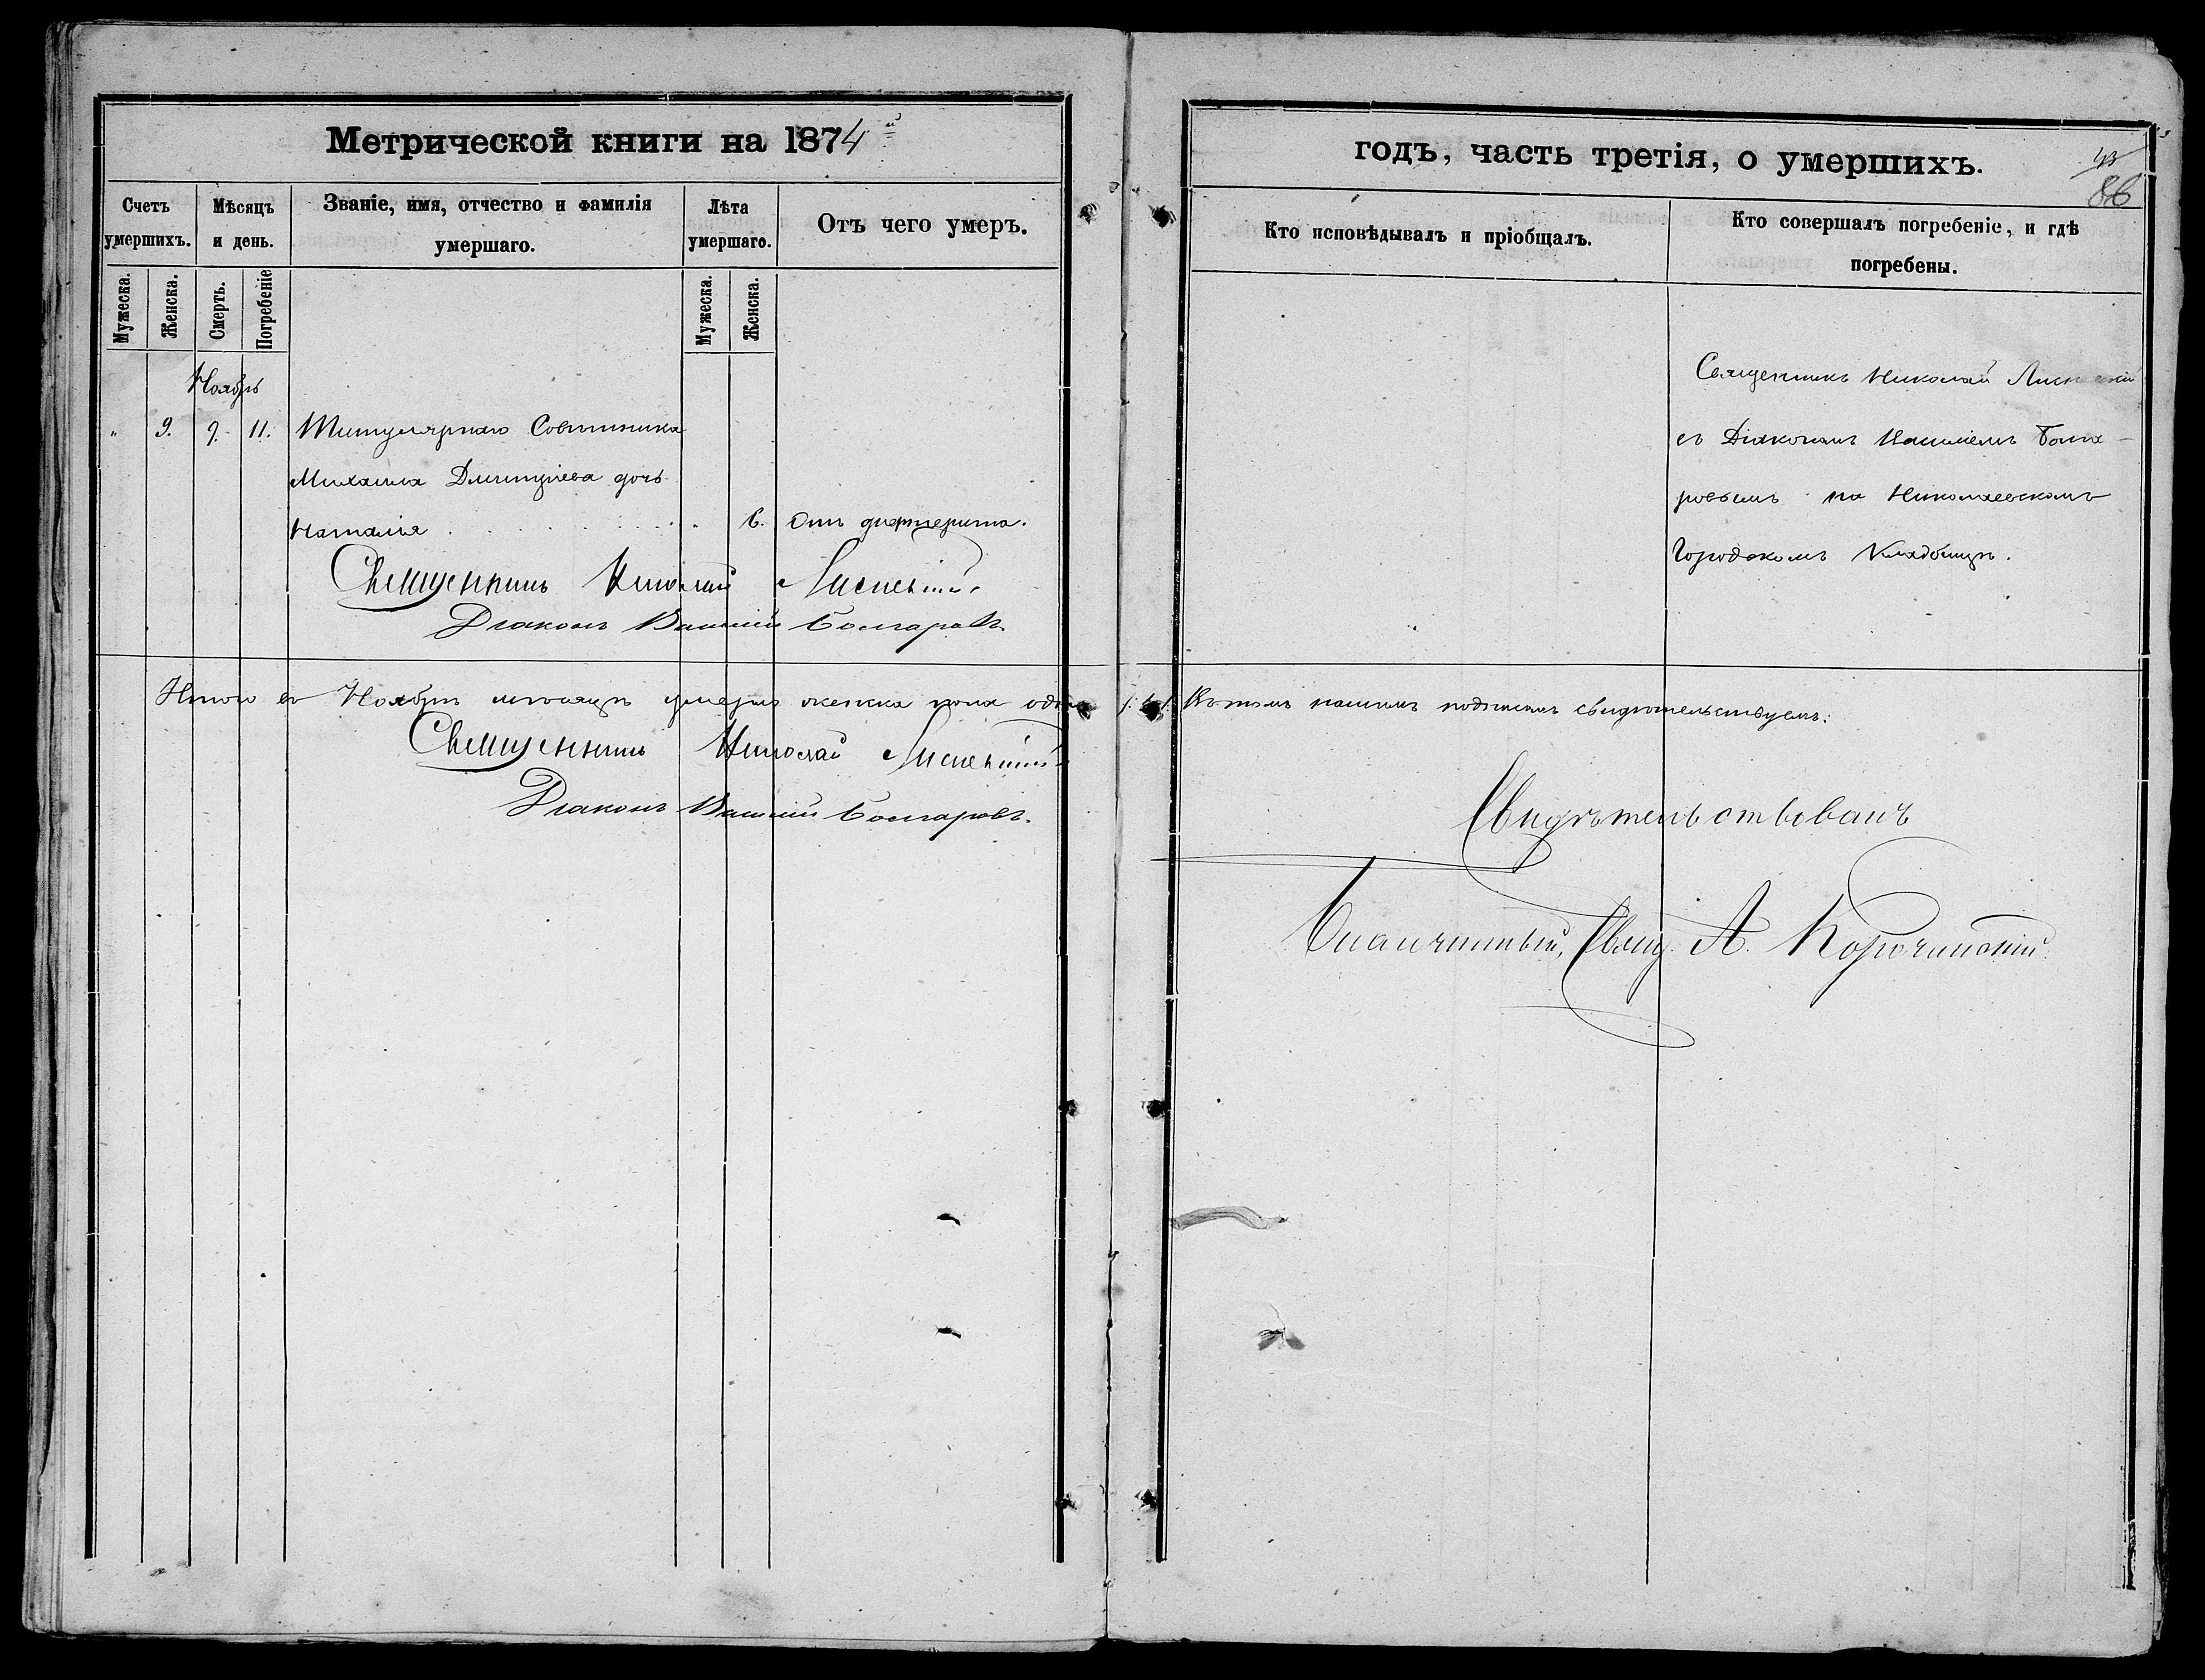 Метрической книги на 1874й
Счетъ умершихъ.
Мѣсяцъ и день.
Званіе, имя, отчество и фамилія умершаго.
Лѣта умершаго.
Отъ чего умеръ.
Мужеска.
Женска.
Смерть.
Погребеніе
Мужеска.
Женска.
Ноябрь
" 9. 9. 11. Титулярнаго Совѣтника
Михаила Димитріева дочь
Наталія . . . . 6. Отъ дифтерита.
Священникъ Николай
Діаконъ Василій Болгаровъ.
Итого въ Ноябрѣ мѣсяцѣ умерло женска пола одна
Священникъ Николай
Діаконъ Василій Болгаровъ.
годъ, часть третія, о умершихъ.
43
86
Кто исповѣдывалъ и пріобщалъ.
Кто совершалъ погребеніе, и гдѣ погребены.
Священникъ Николай
съ Діакономъ Василіемъ Болга-
ровымъ на Николаевскомъ
Городскомъ Кладбищѣ.
Въ томъ нашимъ подписомъ свидѣтельствуемъ:
Свидѣтельствовалъ
Благочинный, Свящ. А. Корочинскій